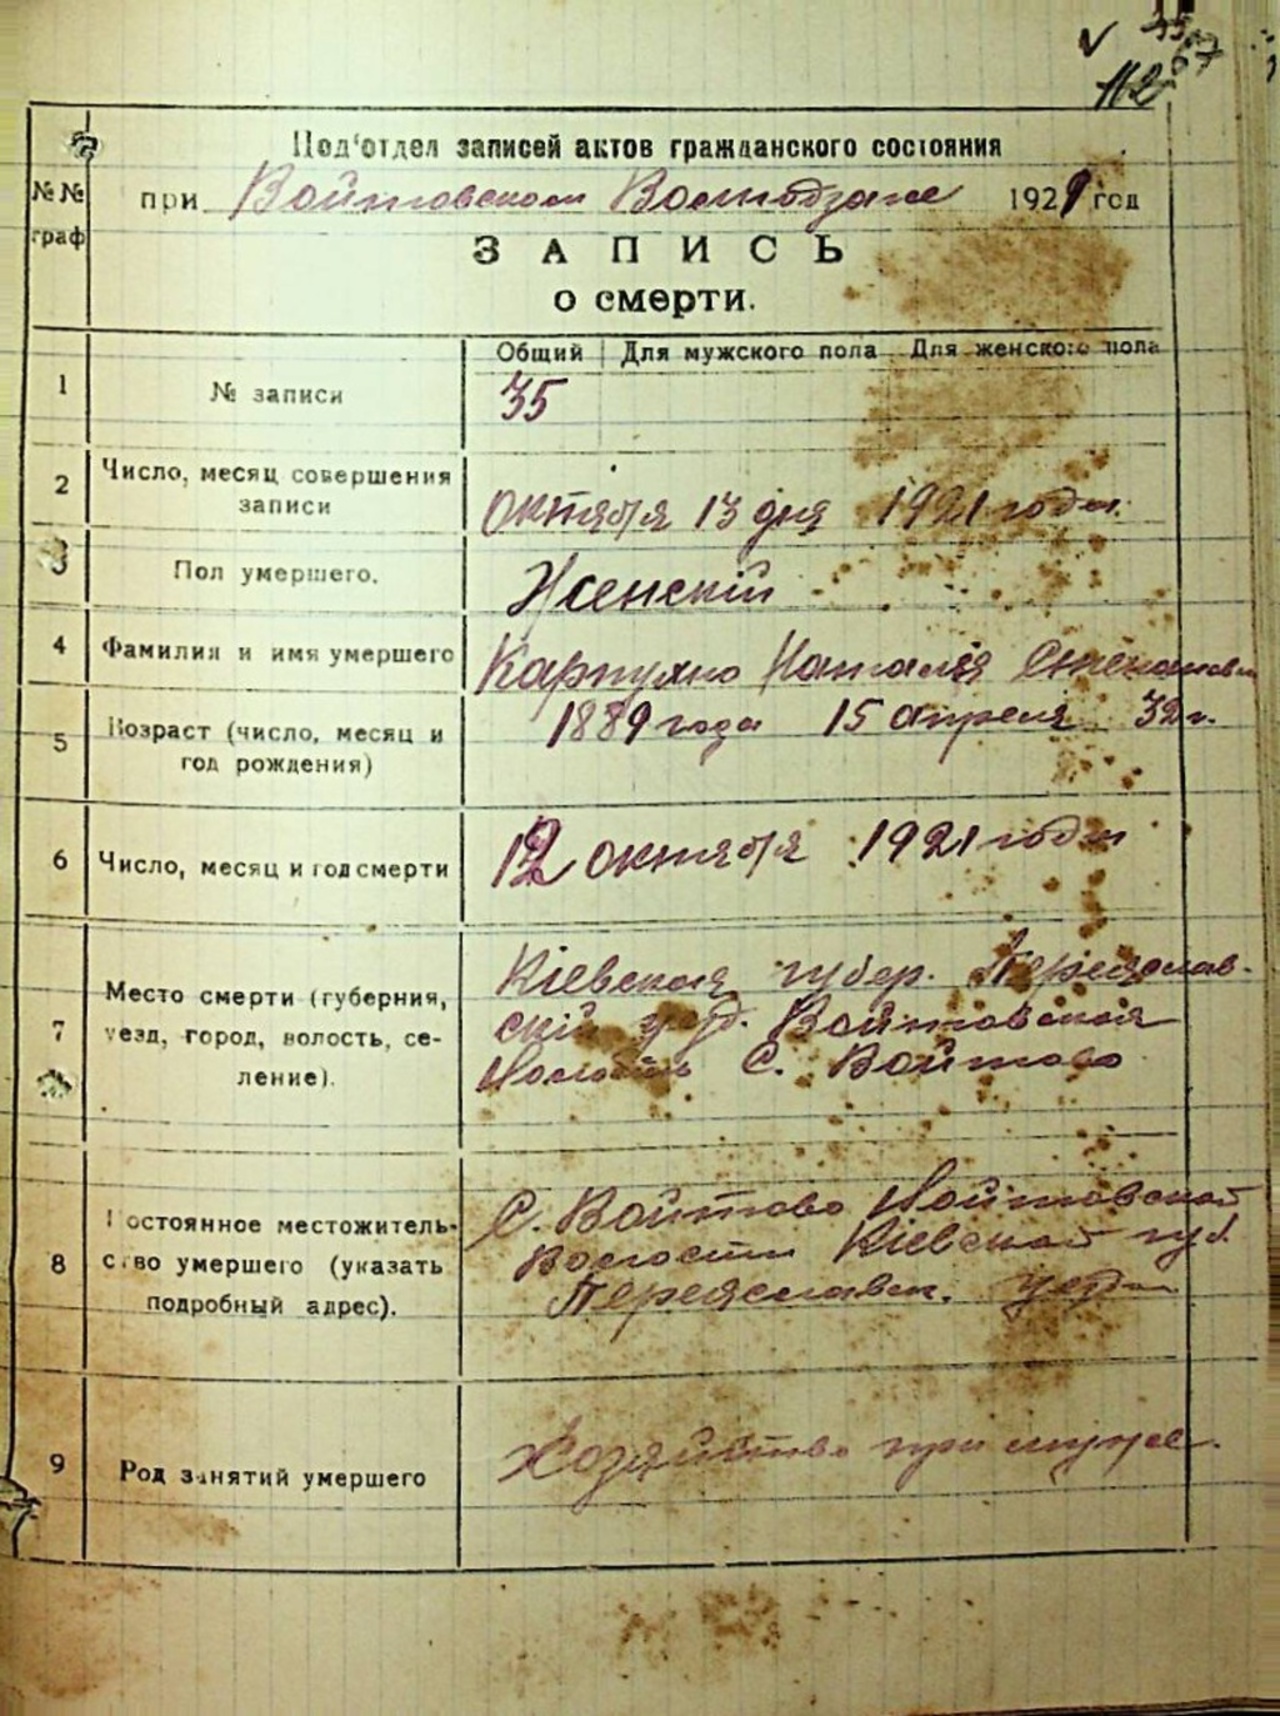 112
Под'отдел записей актов гражданского состояния
при Войтовском Волподзаге 1921 год
№№ граф
ЗАПИСЬ
о смерти.
Общий Для мужского пола Для женского пола
1 № записи 35
2 Число, месяц совершения
записи
октября 13 дня 1921 года.
3 Пол умершего. Женскій
4 Фамилия и имя умершего Карпухно Наталія
5 Возраст (число, месяц и
год рождения)
1889 года 15 апреля 32 г.
6 Число, месяц и год смерти 12 октября 1921 года
7 Место смерти (губерния,
уезд, город, волость, се-
ление).
Кіевская губер. Переяслав-
скій уезд. Войтовская
С. Войтово
8 Постоянное местожитель-
ство умершего (указать
подробный адрес).
С. Войтово Войтовской
Волости Кіевской губ.
Переяславск. уезда
9 Род занятий умершего Хозяйство при муже.